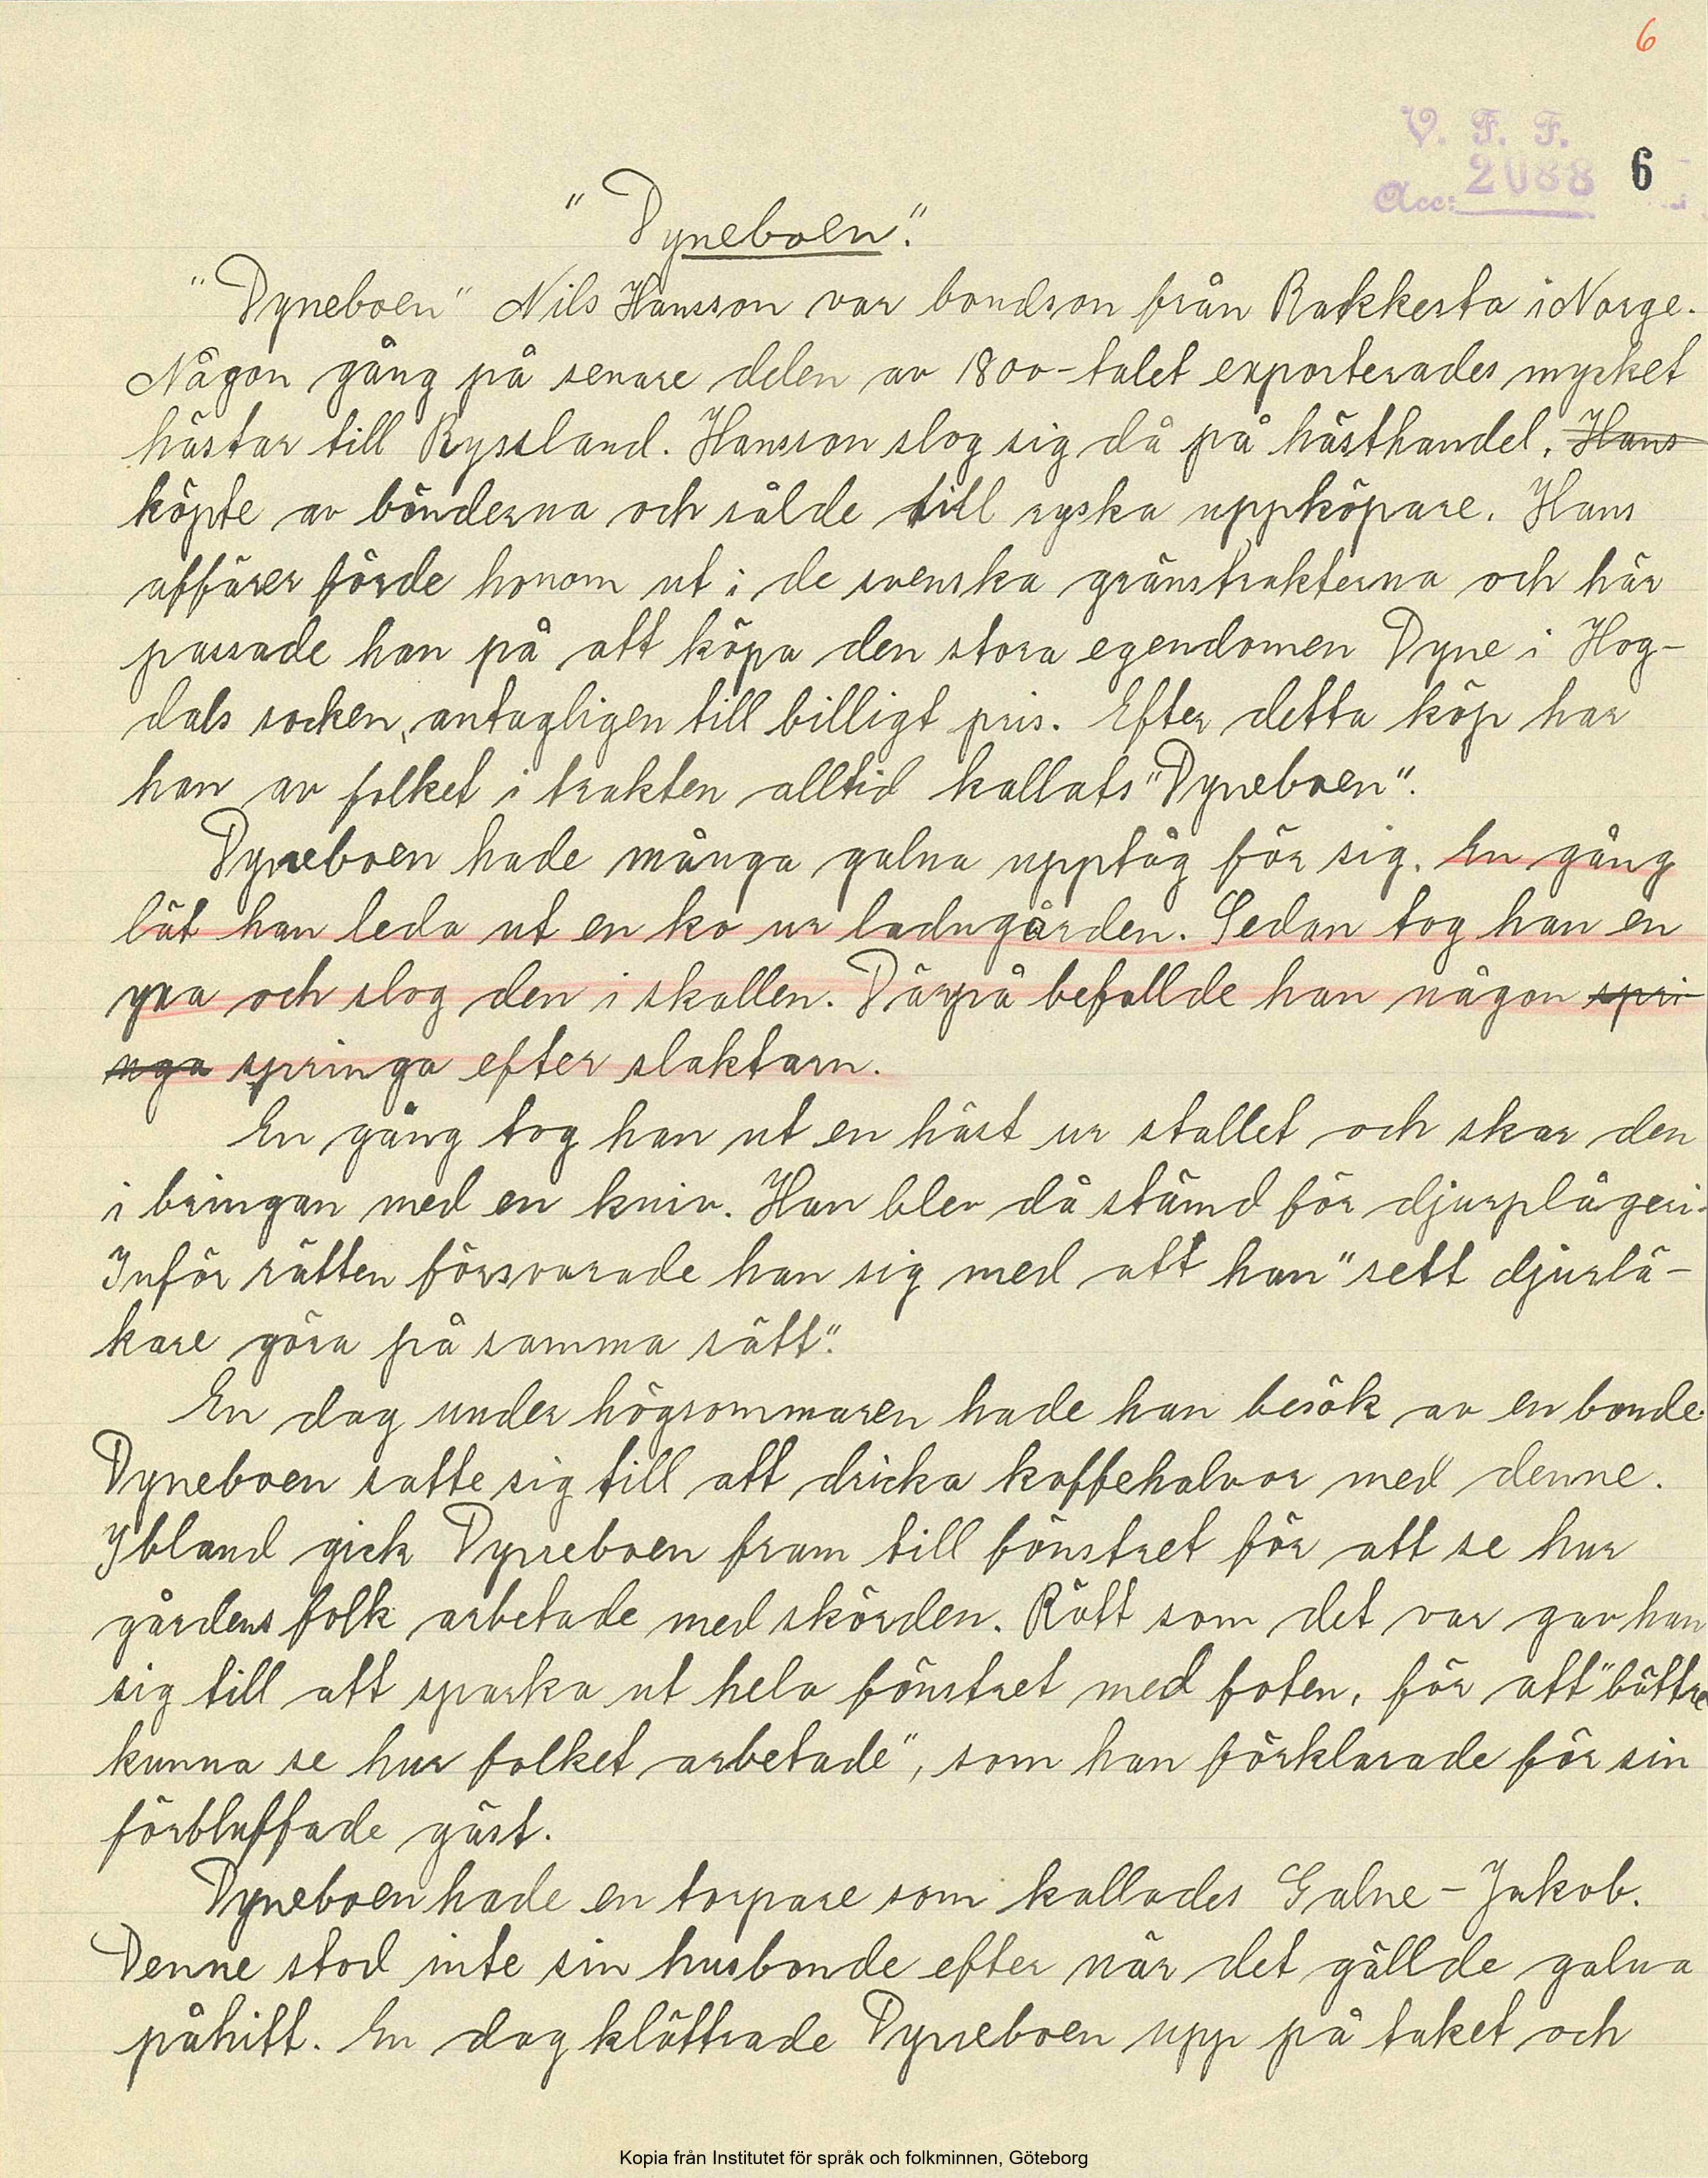 6
V. F. F.
Acc: 2088 6
"Dyneboen".
"Dyneboen" Nils Hansson var bondson från Rakkesta i Norge.
Någon gång på senare delen av 1800-talet exporterades mycket
hästar till Ryssland. Hansson slog sig då på hästhandel, Hans
köpte av bönderna och sålde till ryska uppköpare. Hans
affärer förde honom ut i de svenska gränstrakterna och här
passade han på att köpa den stora egendomen Dyne i Hog-
dals socken, antagligen till billigt pris. Efter detta köp har
han av folket i trakten alltid kallats "Dyneboen".
Dyneboen hade många galna upptåg för sig. En gång
lät han leda ut en ko ur ladugården. Sedan tog han en
yxa och slog den i skallen. Därpå befallde han någon spri
nga springa efter slaktarn.
En gång tog han ut en häst ur stallet och skar den
i bringan med en kniv. Han blev då stämd för djurplågeri.
Inför rätten försvarade han sig med att han "sett djurlä-
kare göra på samma sätt".
En dag under högsommaren hade han besök av en bonde.
Dyneboen satte sig till att dricka kaffehalvor med denne.
Ibland gick Dyneboen fram till fönstret för att se hur
gårdens folk arbetade med skörden. Rätt som det var gav han
sig till att sparka ut hela fönstret med foten, för att "bättre
kunna se hur folket arbetade", som han förklarade för sin
förbluffade gäst.
Dyneboen hade en torpare som kallades Galne-Jakob.
Denne stod inte sin husbonde efter när det gällde galna
påhitt. En dag klättrade Dyneboen upp på taket och
Kopia från Institutet för språk och folkminnen, Göteborg